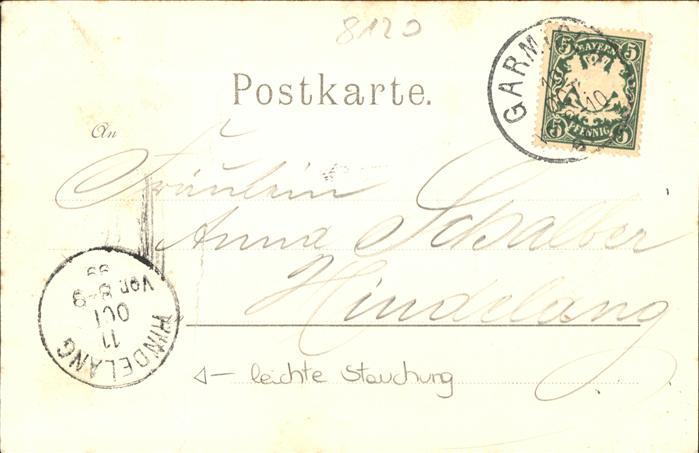 8120
GARM
BAYERN
5 5
5 5
PFENNIG
Postkarte.
An
Fräulein
Anna Schalber
Hindelang
HINDELANG
11
OCT
Vor. 8-9
99
leichte Stauchung